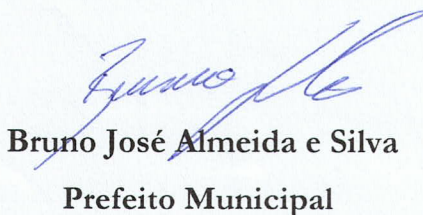 Bruno José Almeida e Silva
Prefeito Municipal